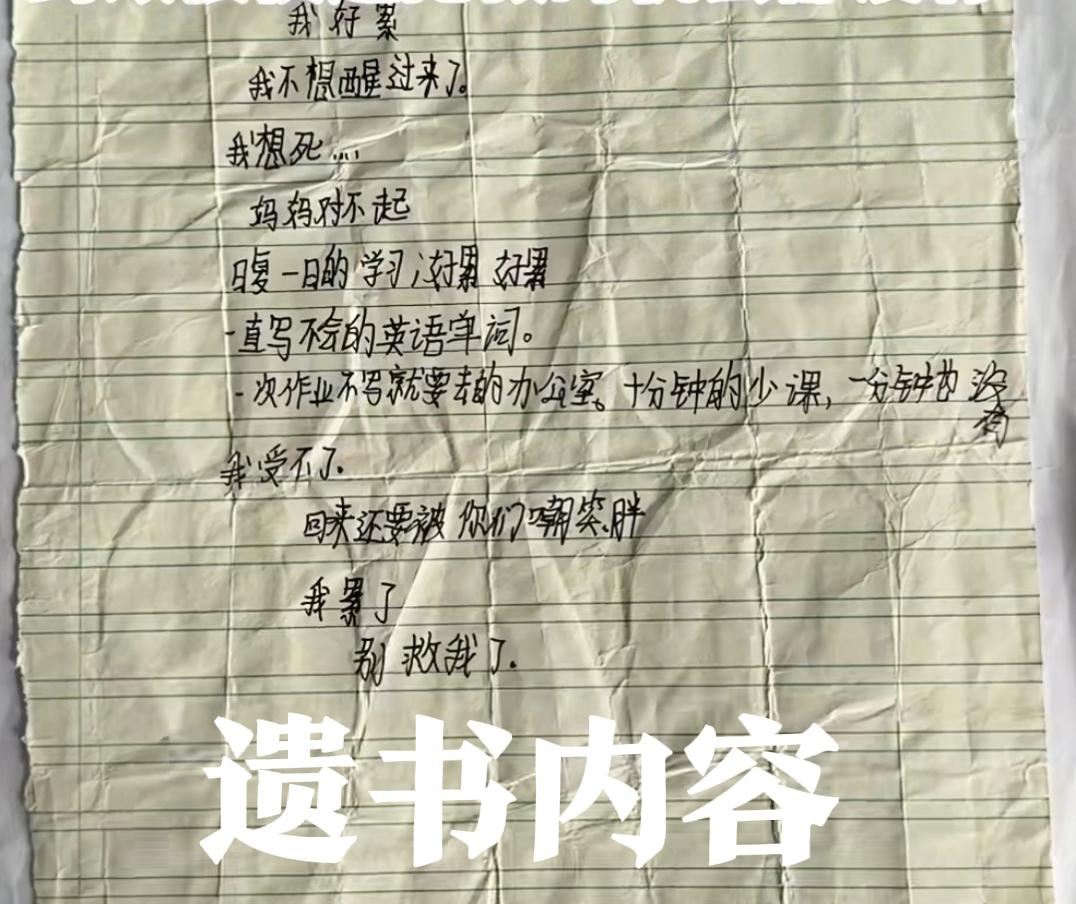 我好累
我不想醒过来了。
我想死....
妈妈对不起
日复一日的学习,好累 好累
一直写不会的英语单词。
一次作业不写就要去的办公室。十分钟的少课,一分钟也没有
我受不了.
回来还要被你们嘲笑胖
我累了
别救我了.
遗书内容